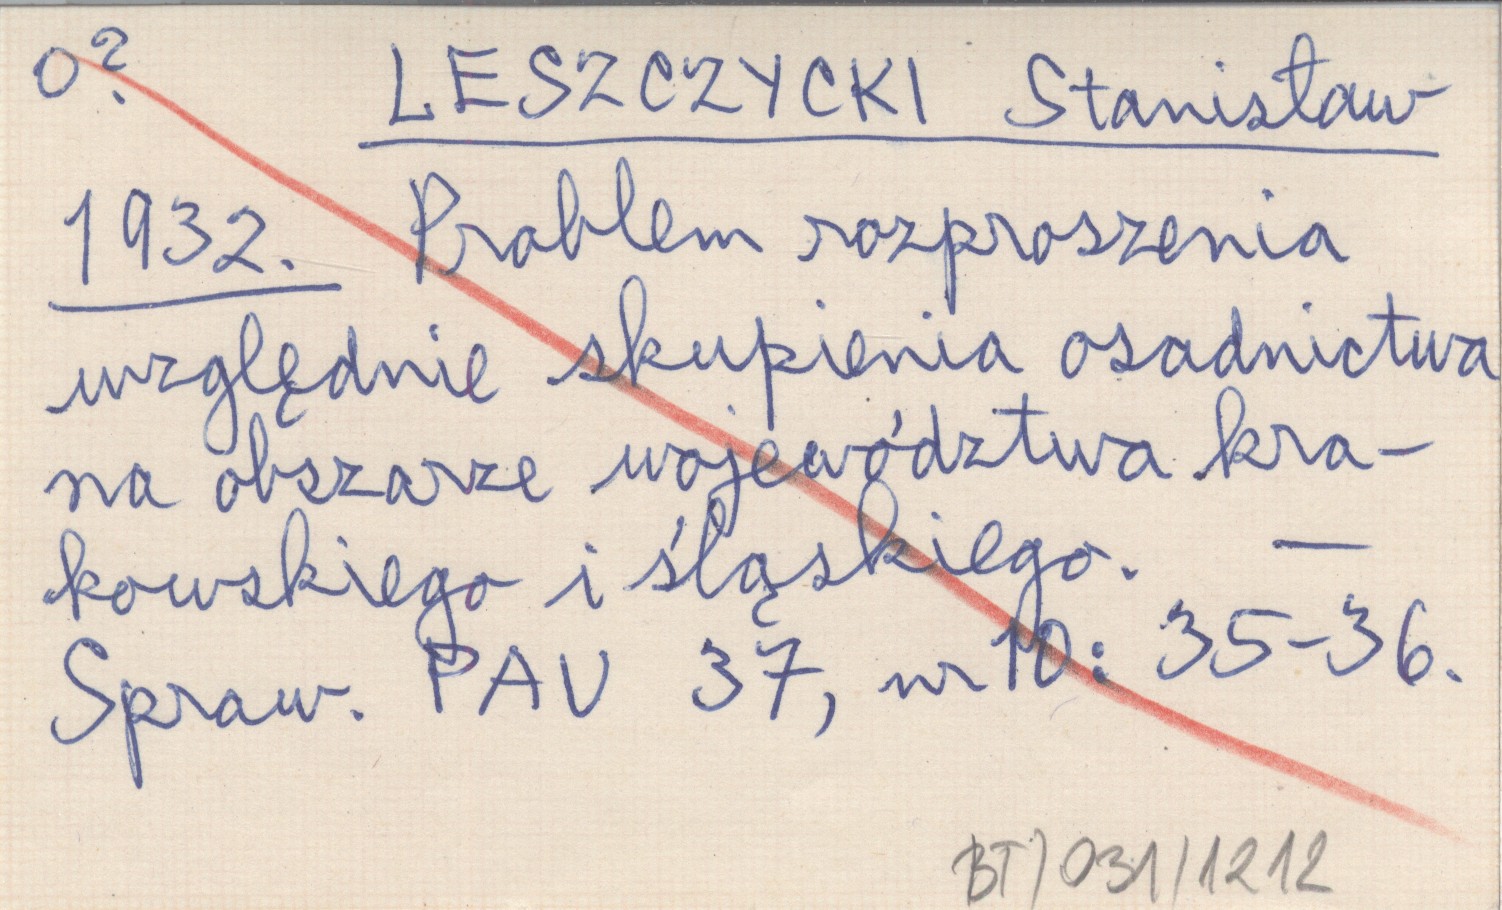 o? LESZCZYCKI Stanisław
1932. Problem rozproszenia
względnie skupienia osadnictwa
na obszarze województwa kra-
kowskiego i śląskiego. —
Spraw. PAU 37, nr 10: 35-36.
BT/031/1212